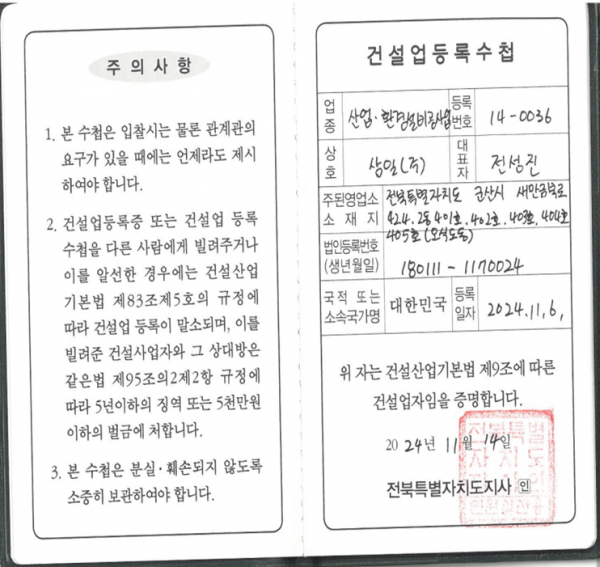 주의사항
1. 본 수첩은 입찰시는 물론 관계관의
요구가 있을 때에는 언제라도 제시
하여야 합니다.
2. 건설업등록증 또는 건설업 등록
수첩을 다른 사람에게 빌려주거나
이를 알선한 경우에는 건설산업
기본법 제83조제5호의 규정에
따라 건설업 등록이 말소되며, 이를
빌려준 건설사업자와 그 상대방은
같은법 제95조의2제2항 규정에
따라 5년이하의 징역 또는 5천만원
이하의 벌금에 처합니다.
3. 본 수첩은 분실·훼손되지 않도록
소중히 보관하여야 합니다.
건설업등록수첩
업종 산업·환경설비공사업 등록번호 14-0036
상호 상일(주) 대표자 전성진
주된영업소 전북특별자치도 군산시 새만금북로
소재지 424. 2동 401호. 402호. 403호. 404호
405호 (오식도동)
법인등록번호
(생년월일) 180111-1170024
국적 또는 소속국가명 대한민국 등록일자 2024.11.6.
위 자는 건설산업기본법 제9조에 따른
건설업자임을 증명합니다.
2024년 11월 14일
전북특별자치도지사 인
전북특별
자치도